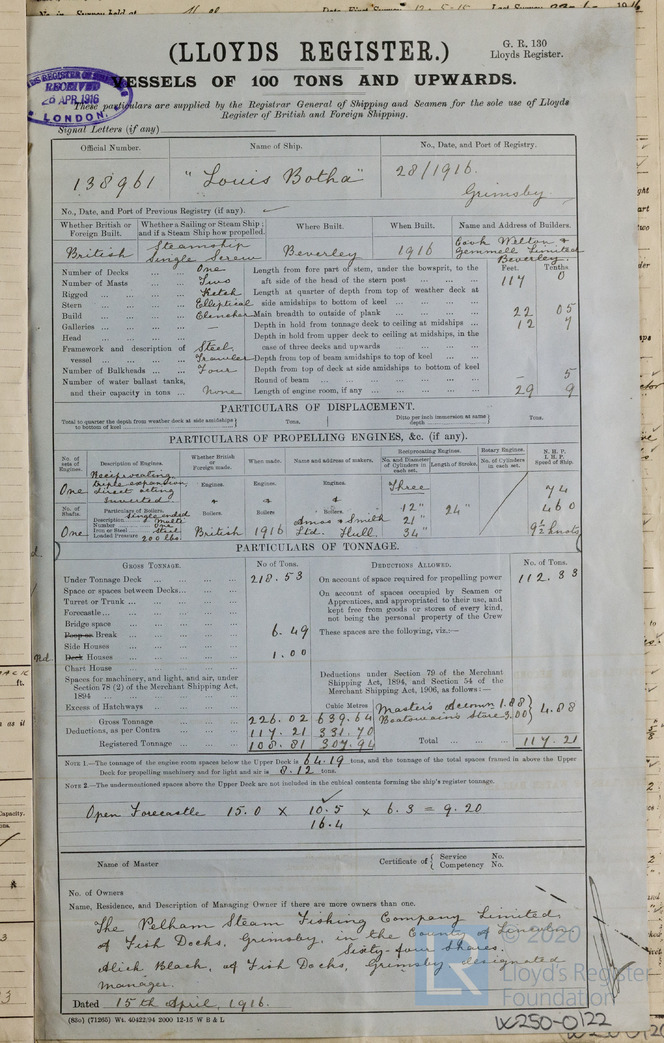 (LLOYDS REGISTER.)
G. R. 130
Lloyds Register.
VESSELS OF 100 TONS AND UPWARDS.
RECEIVED
26 APR 1916
LONDON.
These particulars are supplied by the Registrar General of Shipping and Seamen for the sole use of Lloyds
Register of British and Foreign Shipping.
Signal Letters (if any)
Official Number. Name of Ship. No., Date, and Port of Registry.
138961 "Louis Botha" 28/1916.
Grimsby
No., Date, and Port of Previous Registry (if any).
Whether British or Foreign Built. Whether a Sailing or Steam Ship; and if a Steam Ship how propelled. Where Built. When Built. Name and Address of Builders.
British Steamship Single Screw Beverley 1916 Cook Welton & Gemmell Limited Beverley.
Feet. Tenths.
Number of Decks ... One Length from fore part of stem, under the bowsprit, to the
Number of Masts ... Two aft side of the head of the stern post 117 0
Rigged ... Ketch Length at quarter of depth from top of weather deck at
Stern ... Elliptical side amidships to bottom of keel
Build ... Clencher Main breadth to outside of plank 22 05
Galleries ... – Depth in hold from tonnage deck to ceiling at midships 12 7
Head ... Depth in hold from upper deck to ceiling at midships, in the
Framework and description of Steel case of three decks and upwards
vessel ... Trawler Depth from top of beam amidships to top of keel
Number of Bulkheads ... Four Depth from top of deck at side amidships to bottom of keel
Number of water ballast tanks, Round of beam – 5
and their capacity in tons ... None Length of engine room, if any 29 9
PARTICULARS OF DISPLACEMENT.
Total to quarter the depth from weather deck at side amidships to bottom of keel Tons, Ditto per inch immersion at same depth Tons.
PARTICULARS OF PROPELLING ENGINES, &c. (if any).
No. of sets of Engines. Description of Engines. Whether British or Foreign made. When made. Name and address of makers. Reciprocating Engines. Rotary Engines. N. H. P. I. H. P. Speed of Ship.
No. and Diameter of Cylinders in each set. Length of Stroke. No. of Cylinders in each set.
One Reciprocating Triple expansion, Direct acting Inverted Engines. Engines. Engines. Three 74
No. of Shafts. Particulars of Boilers. & & & 12" 24" 460
Description Single ended Multi Boilers. Boilers Boilers. 21"
Number One
Iron or Steel Steel
One Loaded Pressure 200 lbs. British 1916 Amos & Smith Ltd. Hull. 34" 9½ knots
PARTICULARS OF TONNAGE.
GROSS TONNAGE. No of Tons. DEDUCTIONS ALLOWED. No. of Tons.
Under Tonnage Deck 218.53 On account of space required for propelling power 112.33
Space or spaces between Decks On account of spaces occupied by Seamen or
Turret or Trunk Apprentices, and appropriated to their use, and
Forecastle kept free from goods or stores of every kind,
Bridge space not being the personal property of the Crew
Poop or Break 6.49 These spaces are the following, viz.:—
Side Houses
Deck Houses 1.00
Chart House
Spaces for machinery, and light, and air, under Section 78 (2) of the Merchant Shipping Act, 1894
Deductions under Section 79 of the Merchant Shipping Act, 1894, and Section 54 of the Merchant Shipping Act, 1906, as follows:—
Excess of Hatchways Cubic Metres Master's Accomm 1.88
Gross Tonnage 226.02 639.64 Boatswain's Store 3.00 4.88
Deductions, as per Contra 117.21 331.70
Registered Tonnage 108.81 307.94 Total 117.21
NOTE 1.—The tonnage of the engine room spaces below the Upper Deck is 64.19 tons, and the tonnage of the total spaces framed in above the Upper
Deck for propelling machinery and for light and air is 8.12 tons.
NOTE 2.—The undermentioned spaces above the Upper Deck are not included in the cubical contents forming the ship's register tonnage.
Open Forecastle 15.0 x 10.5 x 6.3 = 9.20
16.4
Name of Master Certificate of { Service No. Competency No.
No. of Owners
Name, Residence, and Description of Managing Owner if there are more owners than one.
The Pelham Steam Fishing Company Limited,
of Fish Docks, Grimsby, in the County of Lincoln,
Sixty-four shares.
Alick Black, of Fish Docks, Grimsby designated
manager.
Dated 15th April, 1916.
(83o) (71265) Wt. 40422/94 2000 12-15 W B & L
© 2020
Lloyd's Register
Foundation
W250-0122